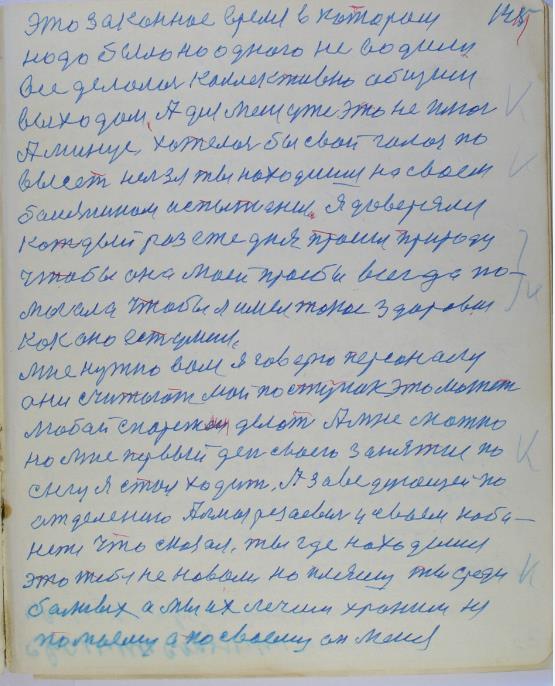 145
Это законное время в котором
надо было но одного не водили
все делалось коллективно общим
выходом, А для меня уже это не плюс
А минус, хотелось бы свой голос по
высет нелзя ты находишся на своем
болезненом испытении. Я доверяли
каждый раз еже дня просил природу
чтобы она моей просбы всегда по-
могала чтобы я имел такое здоровия
как оно есть у меня,
мне нужно вам я говорю персоналу
они считают мой поступок это может
любой делать А мне можно
но мне первый ден своего занятие по
снегу я стал ходить. А заведующей по
отделению в своем каби-
нети что сказал, ты где находишся
это тебе не новом но плячу ты среди
болных а мы их лечим храним не
по твоему а по своему он меня